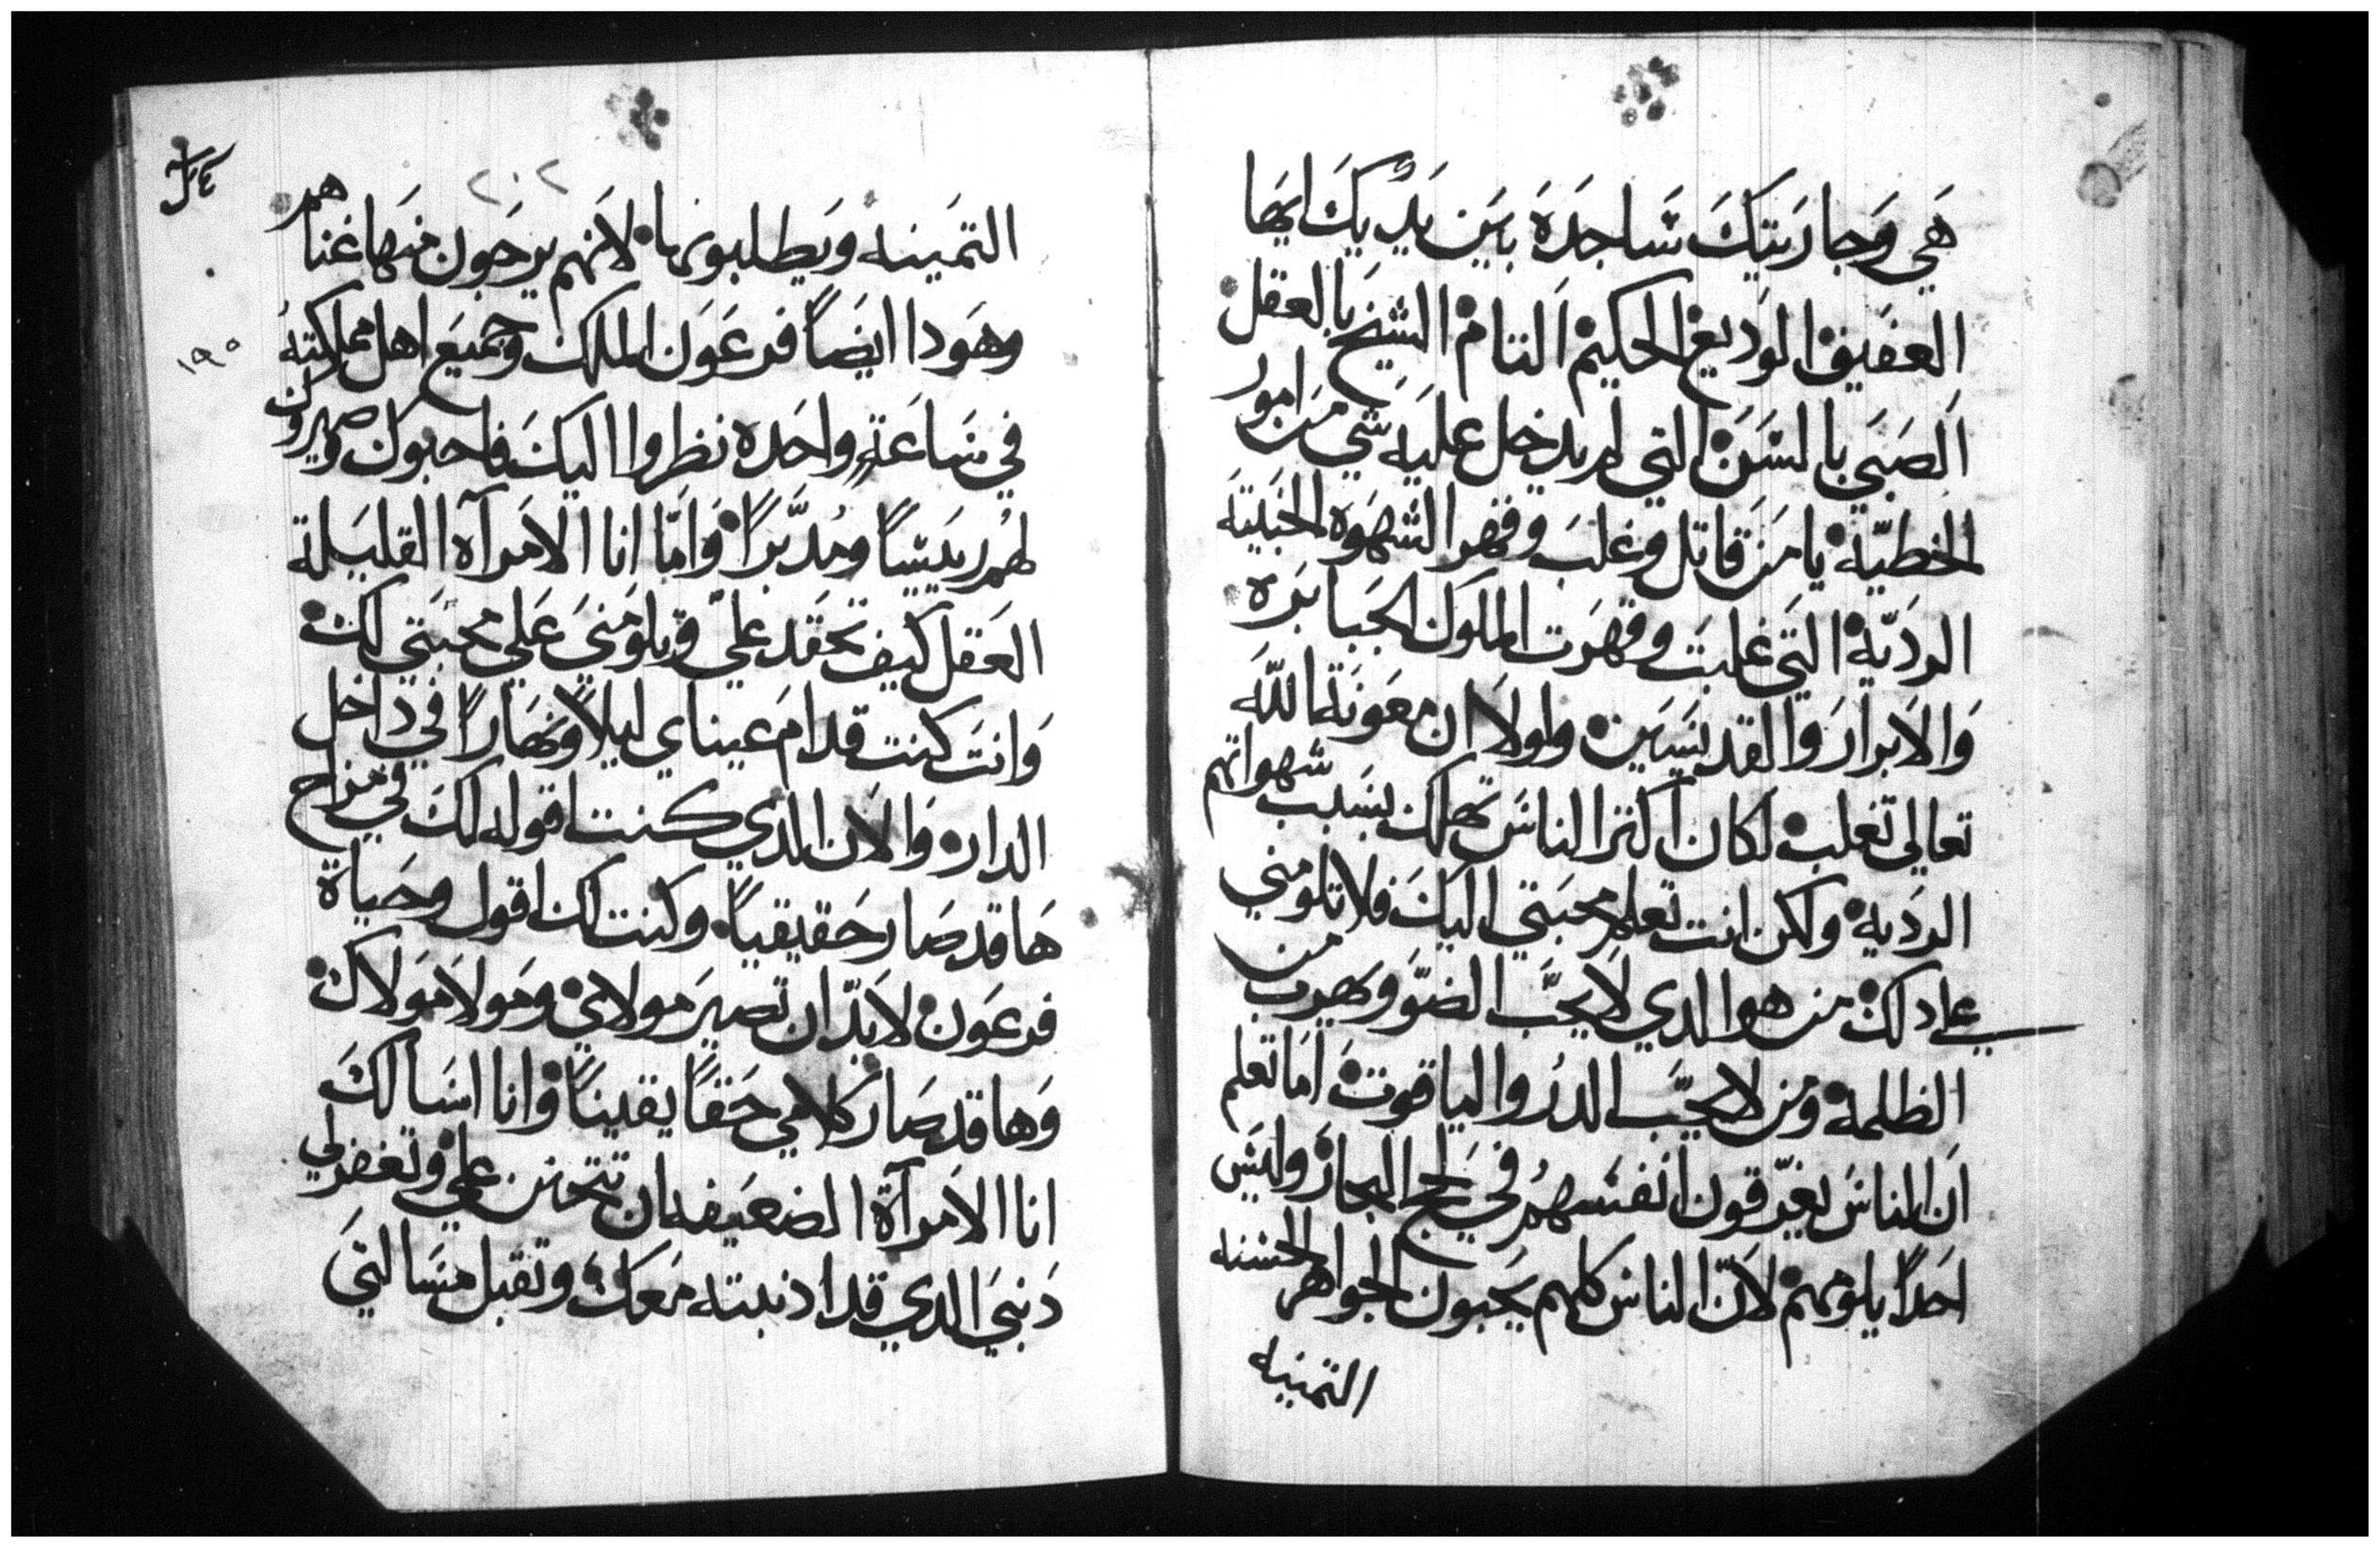 هَي وَجاريَتيَك سَاجدَة بَين يَدَيكَ ايهَا
العفَيف الوَديع الحكيم التام الشيخ بالعقل
الصَبَي بالسَن التي لم يدخل عليَه شي مَن امور
الخطيّة يا مَن قاتل وغلبَ وقهر الشهَوه الخبَيثه
الرديّة التَي غلبَت وقهرَت الملوَك الجَبابَره
وَالابرارَ والقديسَين ولولا ان معَونَة اللّه
تعالي تغلب لكان اكترالناسَ تهلك بسَبب شهواتهم
الردَية ولكن انت تعلم محبَتي اليكَ فلا تلومني
علي دلك من هوالدي لا يحبَّ الضوَّ ويَهرب من
الظلمة ومَن لا يحبّ الدرُ والياقوت امَا تعلم
انَ الناسَ يغرّقون انفسَهمُ في لجج البحارَ وليسَ
احَدًا يلوَمهم لانّ الناسَ كلهم يحَبون الجواهر الحسَنه
التمينه
٢٠٢
التمَينه ويَطلبونها لانَهم يرَجَون منهَا غنا هم
١٩٥
وهوَدا ايضَاً فرعَوَن الملك وجميَع اهل مملكتهُ
في سَاعَةٍ واحَده نظروا اليكَ فاحبوك وصيروك
لهمُ ريَسًا ومُدبّرًا وَامَّا انا الامرَآة القليَلة
العَقل كيَف تحقَد علي وتلومَنيَ عَلي محبَتي لك
وَانتَ كنت قدامَ عيناي ليلاً ونهَارًا في داخل
الدار وَالان الدي كنت اقوله لكَ في مزاح
هَا قد صَار حَقيقياً وكنت لك اقول وحَياة
فرعَوَن لابَدّ ان تصيرَ مولاي ومَولا مَولاك
وَها قد صَار كلامي حَقاً يقينَاً وانا اسَالكَ
انا الامرآة الضعيَفه ان تتحنن علي وتغفرلي
دَنبَي الدي قد ادنبته مَعَك وتقبل مسَالتيَ